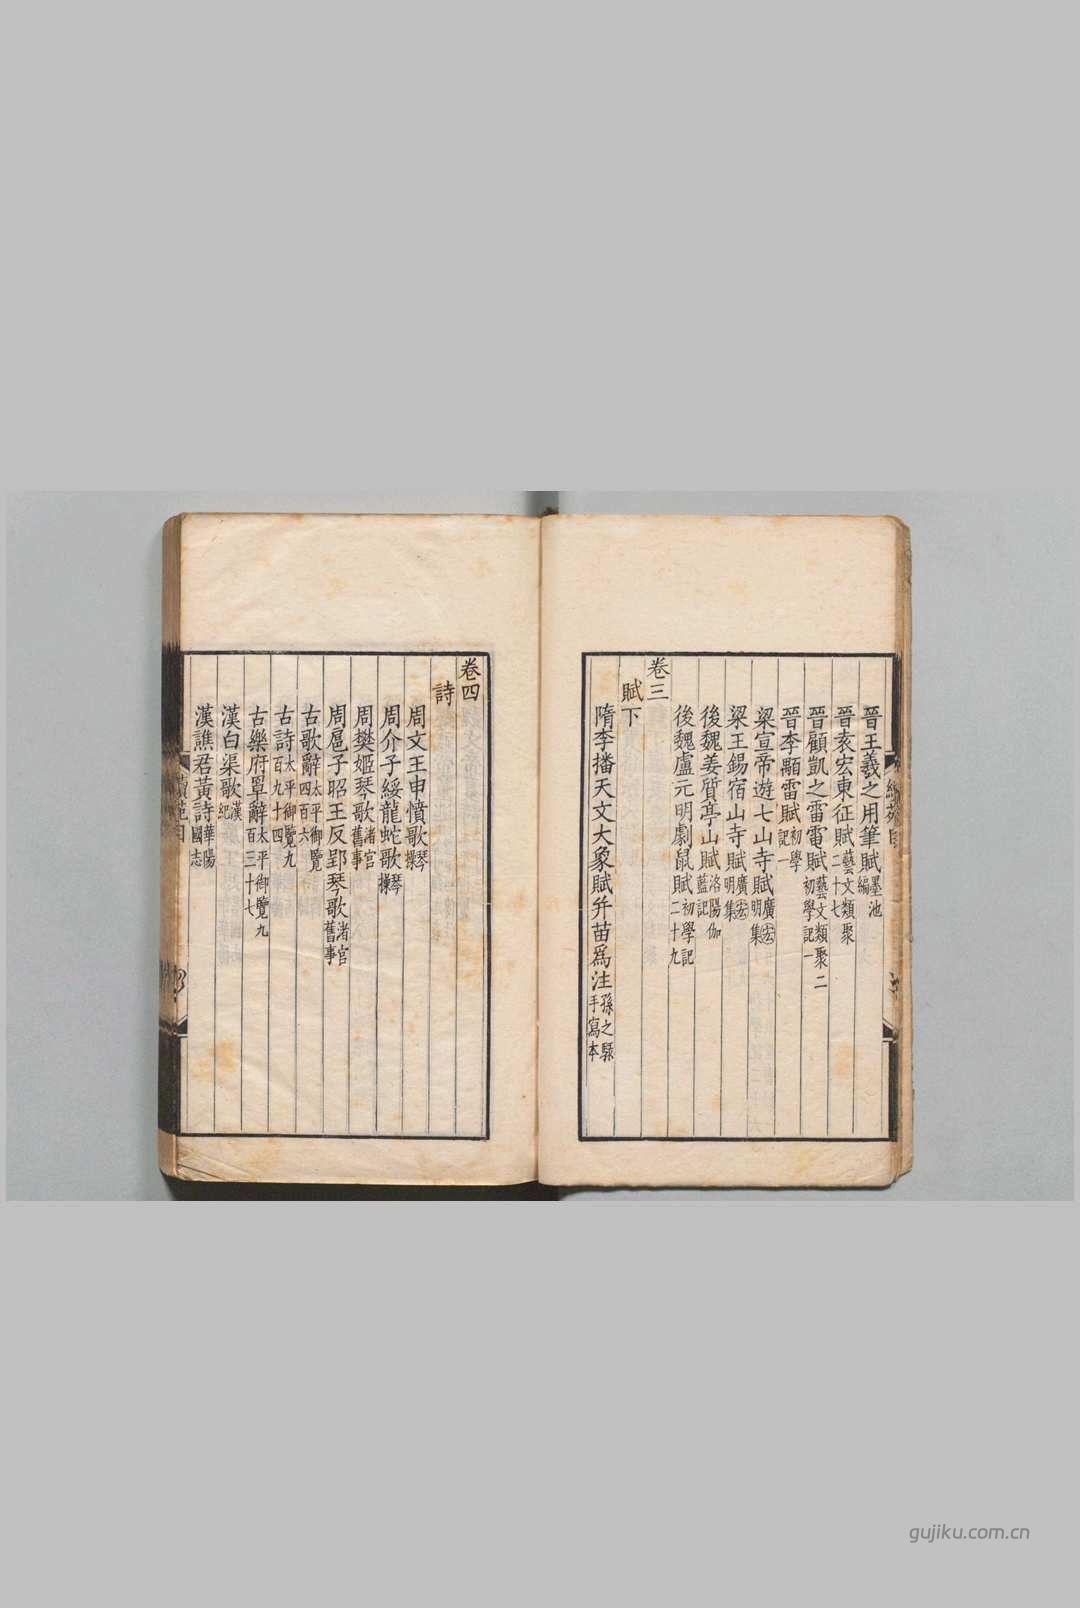 晉王羲之用筆賦墨池編
晉袁宏東征賦藝文類聚二十七
晉顧凱之雷電賦藝文類聚二初學記一
晉李顒雷賦初學記一
梁宣帝遊七山寺賦廣宏明集
梁王錫宿山寺賦廣宏明集
後魏姜質亭山賦洛陽伽藍記
後魏盧元明劇鼠賦初學記二十九
卷三
賦下
隋李播天文大象賦并苗為注孫之騄手寫本
卷四
詩
周文王申憤歌琴操
周介子綏龍蛇歌琴操
周樊姬琴歌渚宮舊事
周扈子昭王反郢琴歌渚宮舊事
古歌辭太平御覽四百六
古詩太平御覽九百九十四
古樂府罩辭太平御覽九百三十七
漢白渠歌漢紀
漢譙君黃詩華陽國志
gujiku.com.cn